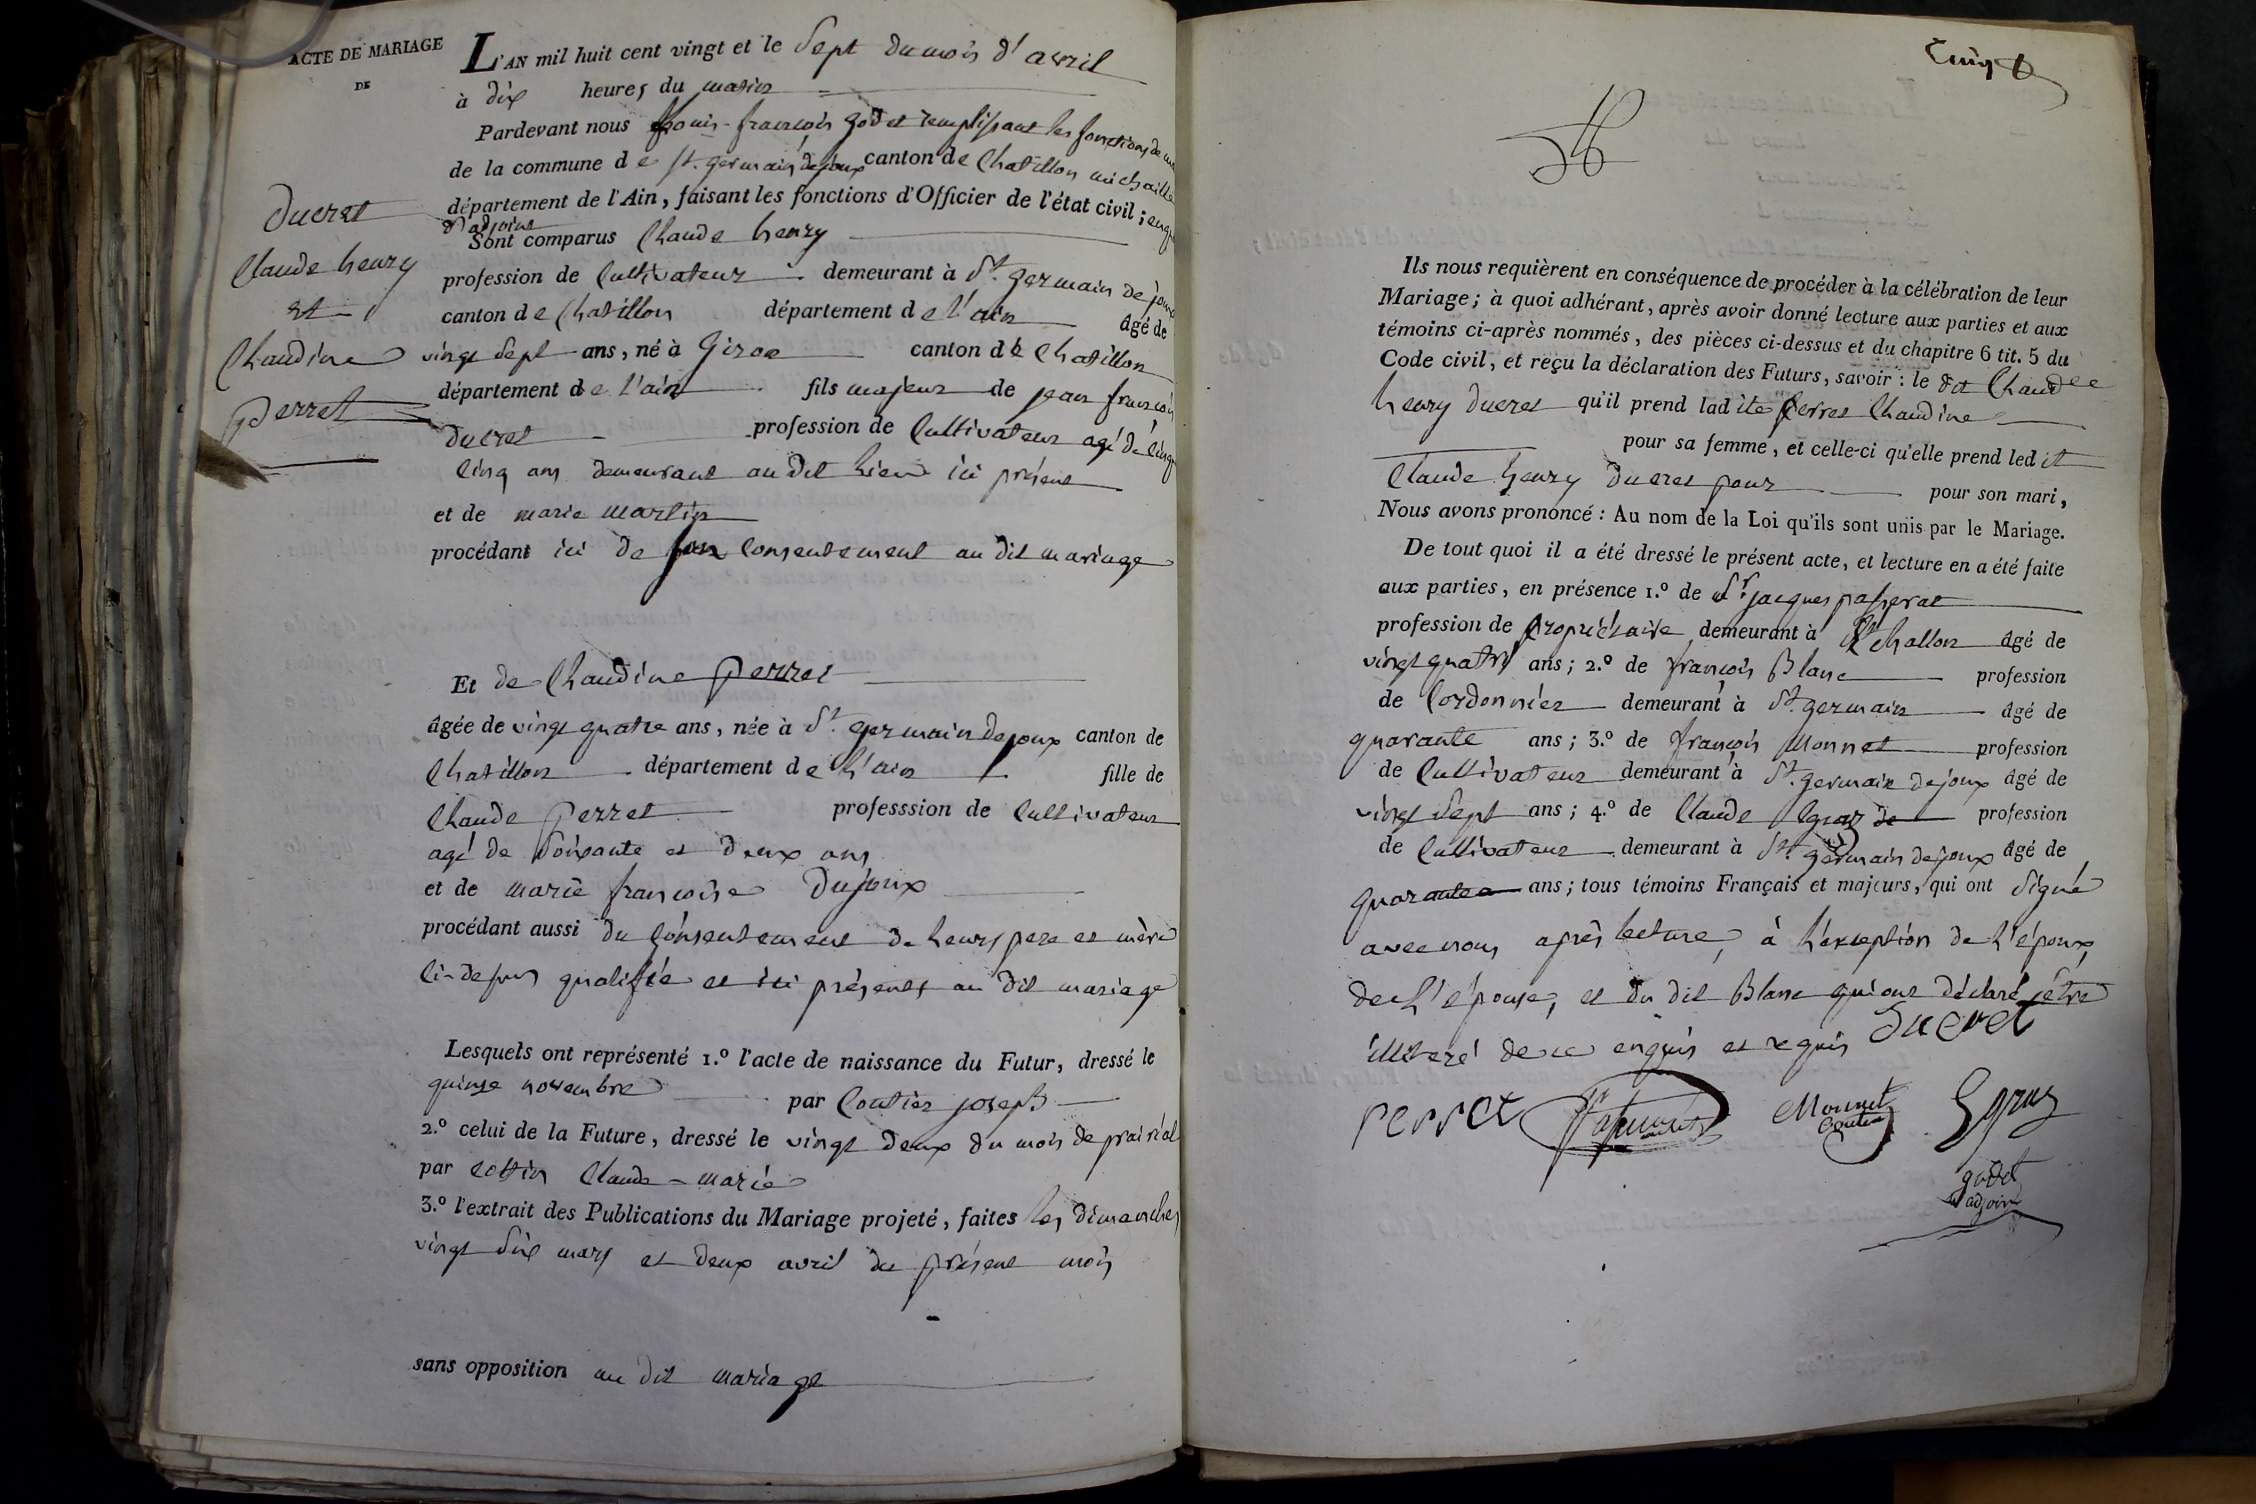 ACTE DE MARIAGE
DE
Ducret
Claude henry
et
Claudine
perret
L'AN mil huit cent vingt et le Sept du mois d'avril
à dix heures du matin
Pardevant nous Louis-françois godet remplissant les fonctions de
de la commune de St. germain dejoux canton de Chatillon michaille
département de l'Ain, faisant les fonctions d'Officier de l'état civil;
d'adjoint
Sont comparus Claude henry
profession de Cultivateur demeurant à St. germain de joux
canton de Chatillon département de l'ain âgé de
vingt Sept ans, né à Giron canton de Chatillon
département de l'ain fils majeur de jean françois
ducret profession de Cultivateur agé de
Cinq ans demeurant au dit lieu ici présent
et de marie martin
procédant ici de son Consentement au dit mariage
Et de Claudine perret
âgée de vingt quatre ans, née à St. germain Dejoux canton de
Chatillon département de l'ain fille de
Claude perret professsion de Cultivateur
agé de Soixante et deux ans
et de marie françoise Dujoux
procédant aussi du Consentement de leurs pere et mère
Ci-dessus qualifié et ici présents au dit mariage
Lesquels ont représenté 1.º l'acte de naissance du Futur, dressé le
quinze novembre par Coutier joseph
2.º celui de la Future, dressé le vingt deux du mois de prairéal
par Cottin Claude-marie
3.º l'extrait des Publications du Mariage projeté, faites les dimanches
vingt Six mars et deux avril du présent mois
sans opposition au dit mariage
Ils nous requièrent en conséquence de procéder à la célébration de leur
Mariage; à quoi adhérant, après avoir donné lecture aux parties et aux
témoins ci-après nommés, des pièces ci-dessus et du chapitre 6 tit. 5 du
Code civil, et reçu la déclaration des Futurs, savoir: le dit Claude
henry ducret qu'il prend ladite perret Claudine
pour sa femme, et celle-ci qu'elle prend ledit
Claude henry Ducret pour pour son mari,
Nous avons prononcé: Au nom de la Loi qu'ils sont unis par le Mariage.
De tout quoi il a été dressé le présent acte, et lecture en a été faite
aux parties, en présence 1.º de Sr. jacques passerat
profession de propriétaire demeurant à Chatillon âgé de
vingt quatre ans; 2.º de françois Blanc profession
de Cordonnier demeurant à St. germain âgé de
quarante ans; 3.º de françois Monnet profession
de Cultivateur demeurant à St. germain dejoux âgé de
vingt Sept ans; 4.º de Claude profession
de Cultivateur demeurant à St. germain dejoux âgé de
quarante ans; tous témoins Français et majeurs, qui ont Signé
avec nous après lecture, à l'exception de l'époux,
de l'épouse, et du dit Blanc qui ont déclaré être
illiteré de ce enquis et requis Ducret
perret Monnet Egraz
godet
adjoint